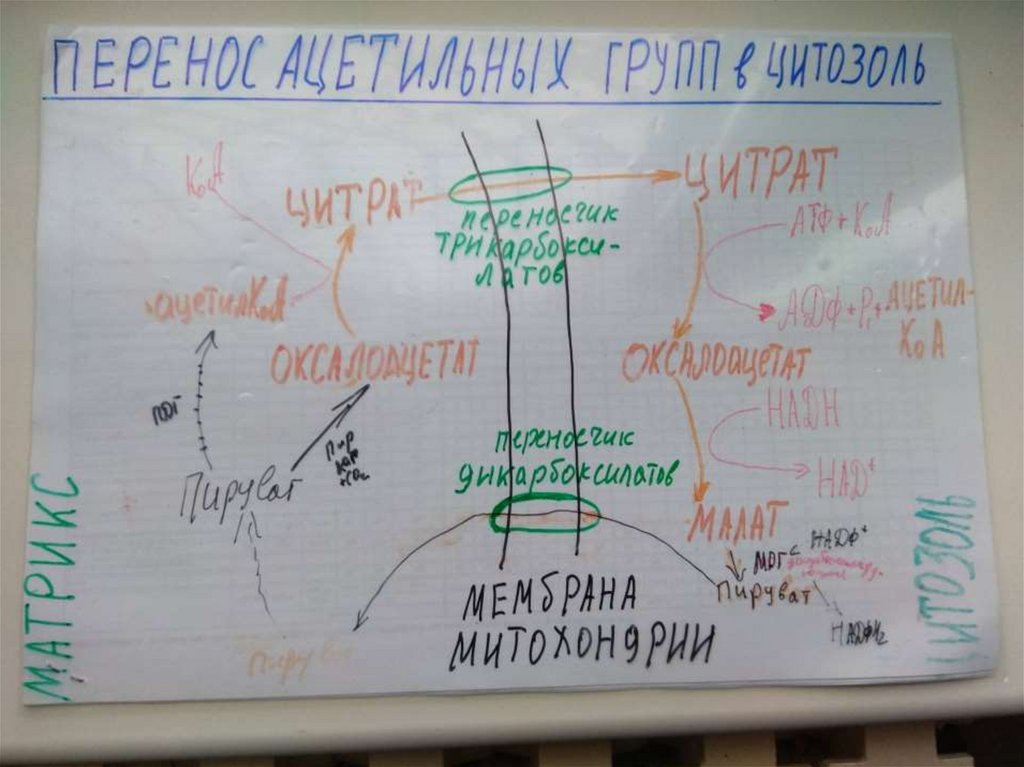 ПЕРЕНОС АЦЕТИЛЬНЫХ ГРУПП в ЦИТОЗОЛЬ
КоА
ЦИТРАТ
ЦИТРАТ
переносчик
ТРИкарбокси-
латов
АТФ + КоА
ацетилКоА
АДФ + Pi +
АЦЕТИЛ-
КоА
ОКСАЛОАЦЕТАТ
ОКСАЛОАЦЕТАТ
ПДГ
Пир
кар
+CO₂
НАДН
переносчик
дикарбоксилатов
НАД⁺
Пируват
МАЛАТ
МАТРИКС
ЦИТОЗОЛЬ
НАДФ⁺
МДГ
Пируват
НАДФН₂
МЕМБРАНА
МИТОХОНДРИИ
Пируват